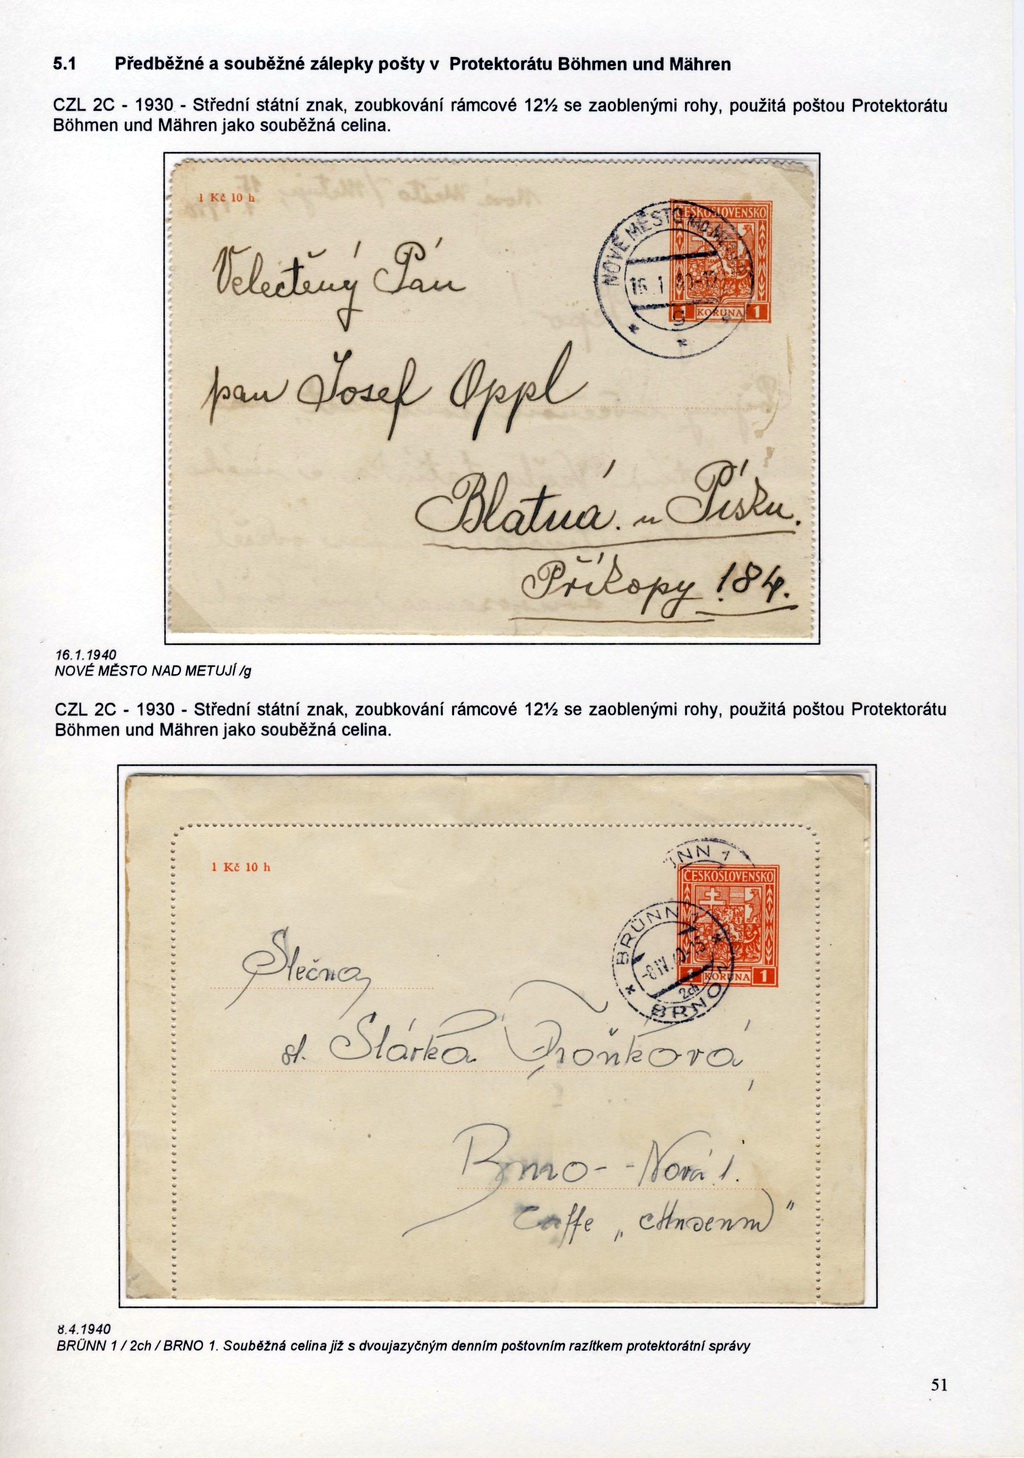 5.1 Předběžné a souběžné zálepky pošty v Protektorátu Böhmen und Mähren
CZL 2C - 1930 - Střední státní znak, zoubkování rámcové 12½ se zaoblenými rohy, použitá poštou Protektorátu
Böhmen und Mähren jako souběžná celina.
1 Kč 10 h
ČESKOSLOVENSKO
NOVÉ MĚSTO NAD
16. I
g
1 KORUNA 1
Velectěný Pán
pan Josef Oppl
Blatná. u Písku.
Příkopy 184.
16.1.1940
NOVÉ MĚSTO NAD METUJÍ /g
CZL 2C - 1930 - Střední státní znak, zoubkování rámcové 12½ se zaoblenými rohy, použitá poštou Protektorátu
Böhmen und Mähren jako souběžná celina.
1 Kč 10 h
ČESKOSLOVENSKO
BRÜNN 1
-8.IV.40-15
2ch
BRNO
1 KORUNA 1
Slečna
sl. Slárka Troňková
Brno - - Nová 1.
Caffe „
8.4.1940
BRÜNN 1 / 2ch / BRNO 1. Souběžná celina již s dvoujazyčným denním poštovním razítkem protektorátní správy
51